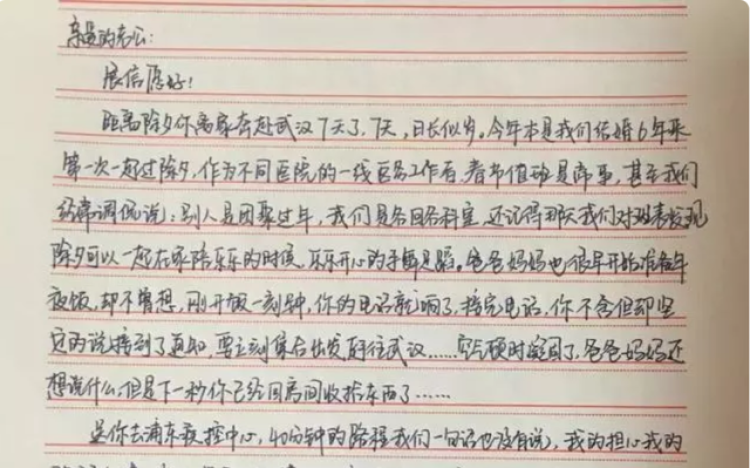 亲爱的老公：
展信愿好！
距离除夕你离家奔赴武汉7天了，7天，日长似岁。今年本是我们结婚6年来
第一次一起过除夕，作为不同医院的一线医务工作者，春节值班是常事，甚至我们
经常调侃说：别人是团聚过年，我们是各回各科室，还记得那天我们对班表发现
除夕可以一起在家陪乐乐的时候，乐乐开心的手舞足蹈。爸爸妈妈也很早开始准备年
夜饭，却不曾想，刚开饭一刻钟，你的电话就响了，接完电话，你不舍但却坚
定的说接到了通知，要立刻集合出发前往武汉......空气顿时凝固了，爸爸妈妈还
想说什么，但是下一秒你已经回房间收拾东西了......
送你去浦东疾控中心，40分钟的路程我们一句话也没有说，我的担心我的